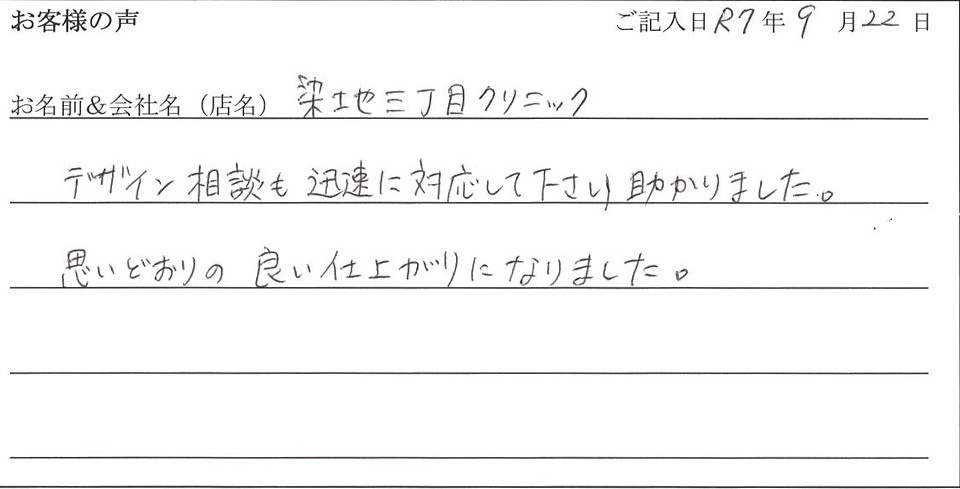 お客様の声 ご記入日 R7 年 9 月 22 日
お名前&会社名（店名） 染地三丁目クリニック
デザイン相談も迅速に対応して下さり助かりました。
思いどおりの良い仕上がりになりました。